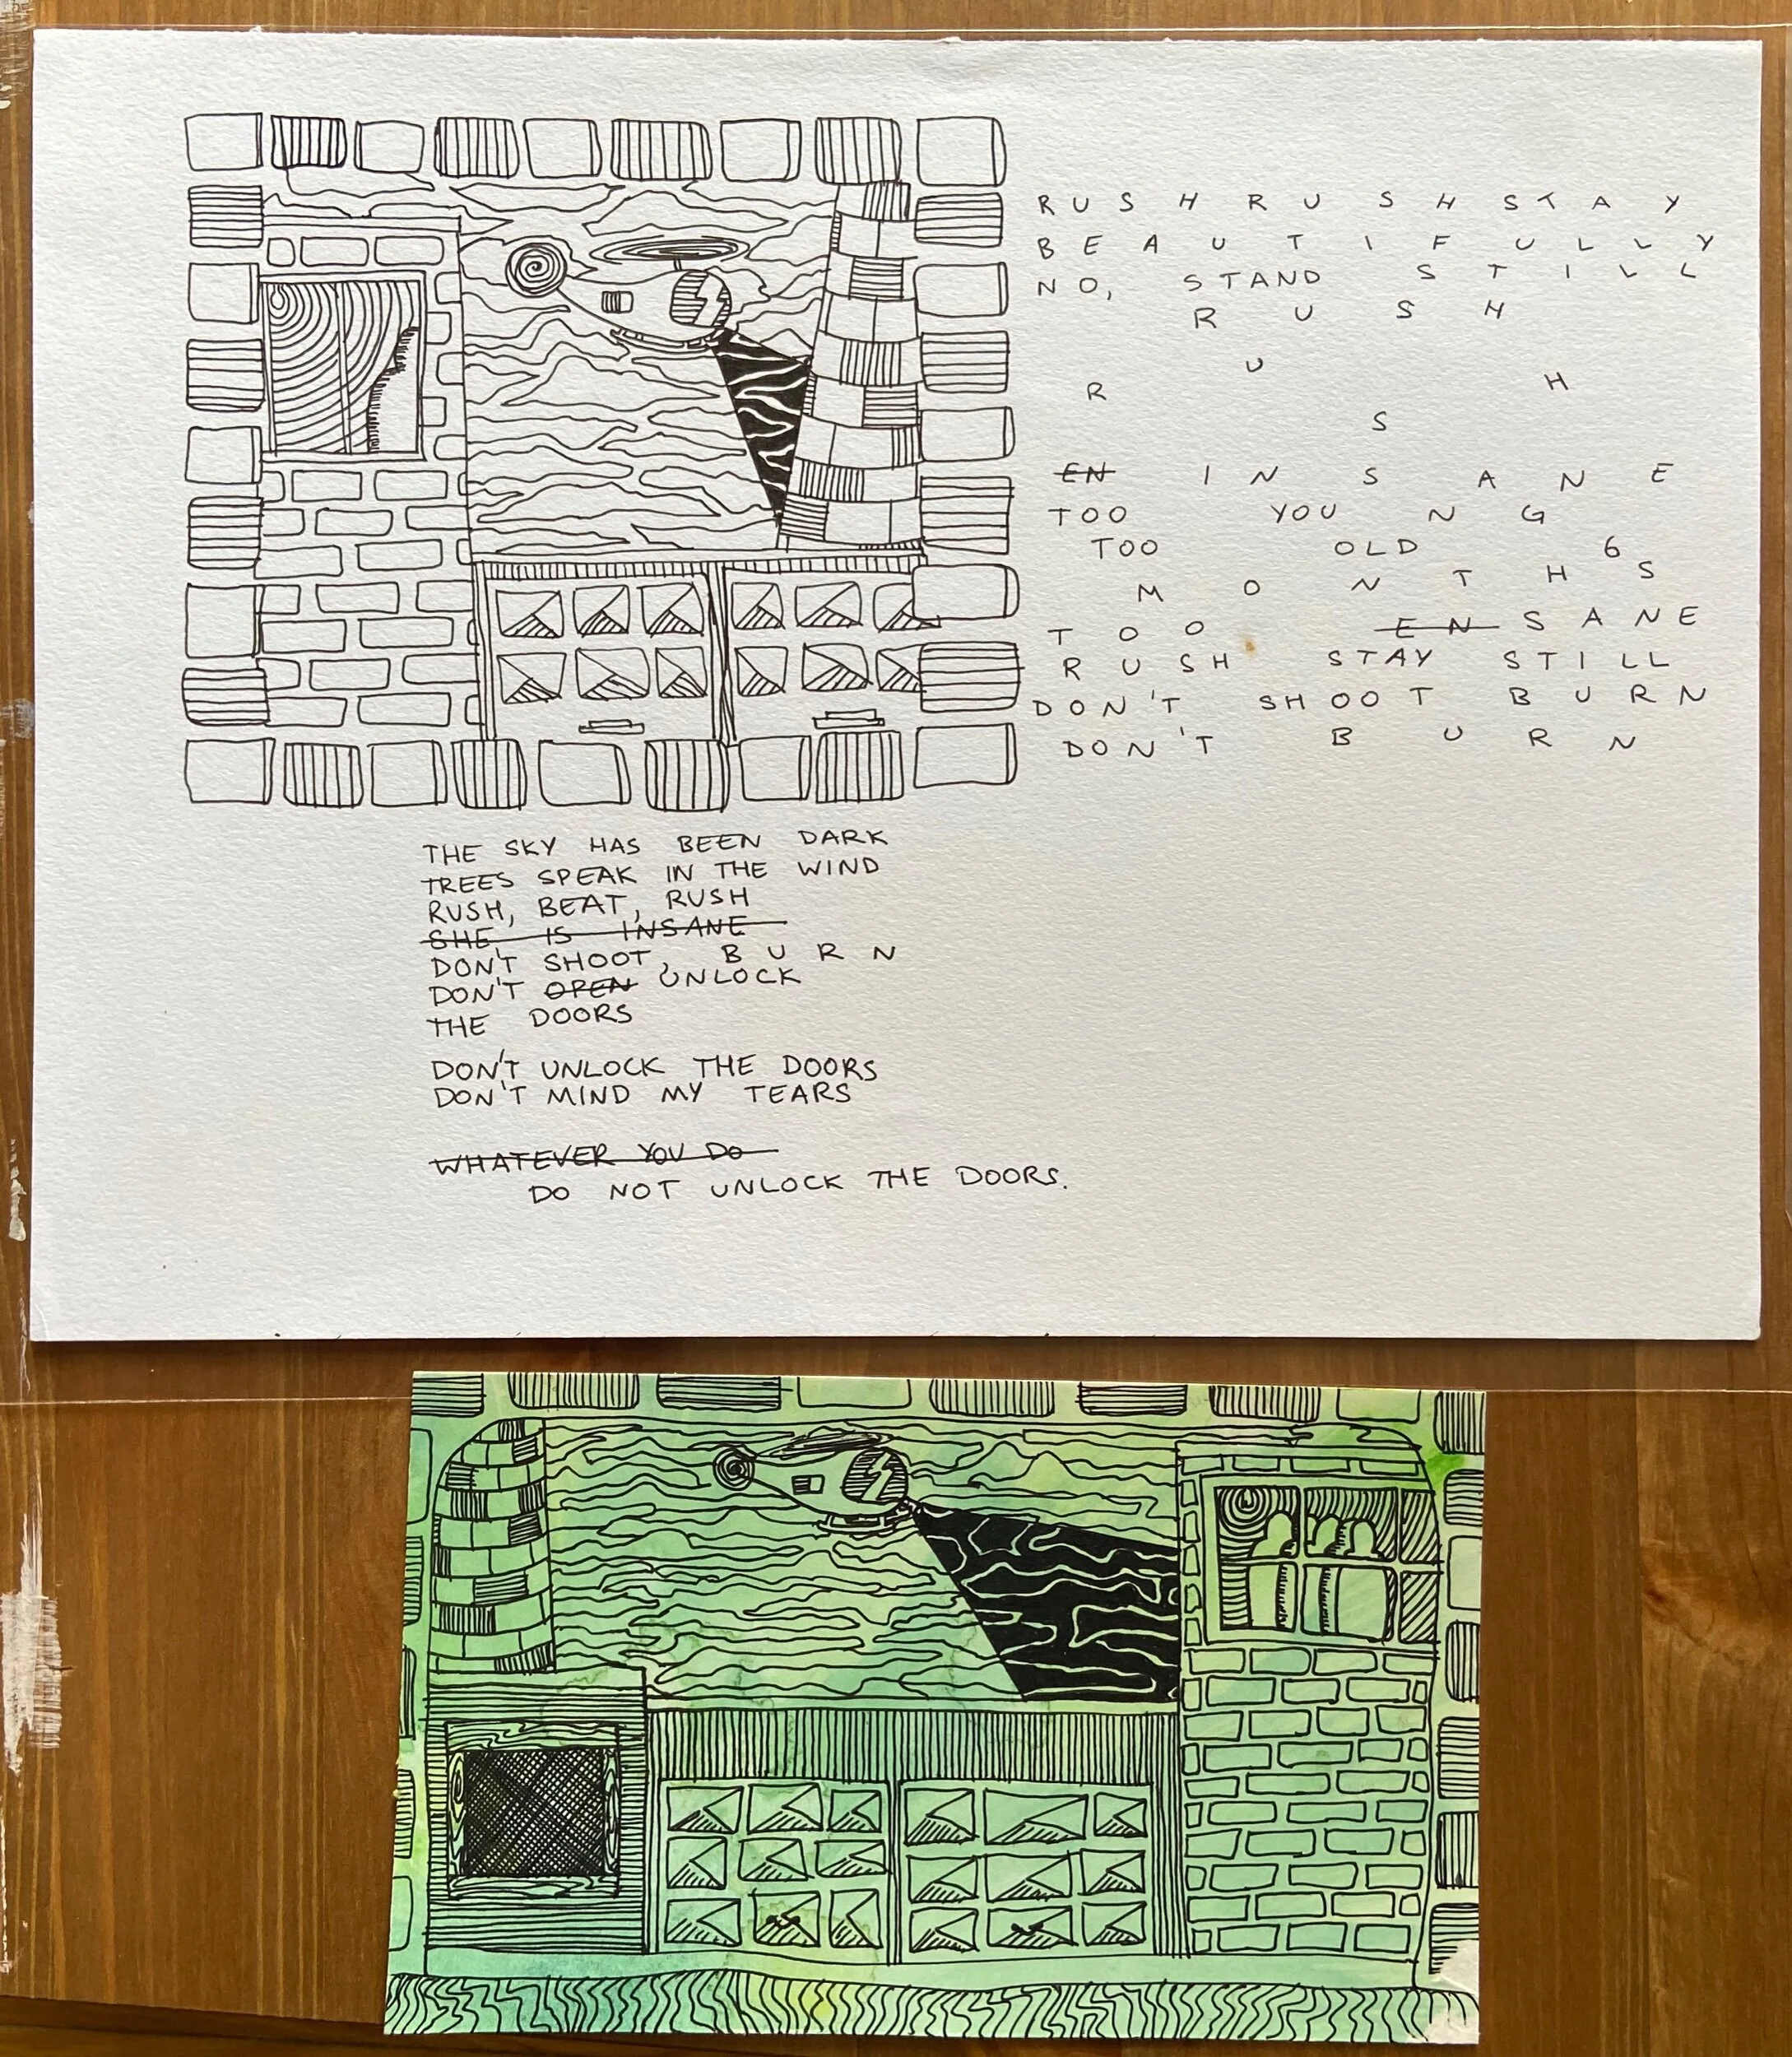 RUSH RUSH STAY
BEAUTIFULLY
NO, STAND STILL
RUSH
RUSH
EN INSANE
TOO YOUNG
TOO OLD 6
MONTHS
TOO EN SANE
RUSH STAY STILL
DON'T SHOOT BURN
DON'T BURN
THE SKY HAS BEEN DARK
TREES SPEAK IN THE WIND
RUSH, BEAT, RUSH
SHE IS INSANE
DON'T SHOOT, BURN
DON'T OPEN UNLOCK
THE DOORS
DON'T UNLOCK THE DOORS
DON'T MIND MY TEARS
WHATEVER YOU DO
DO NOT UNLOCK THE DOORS.